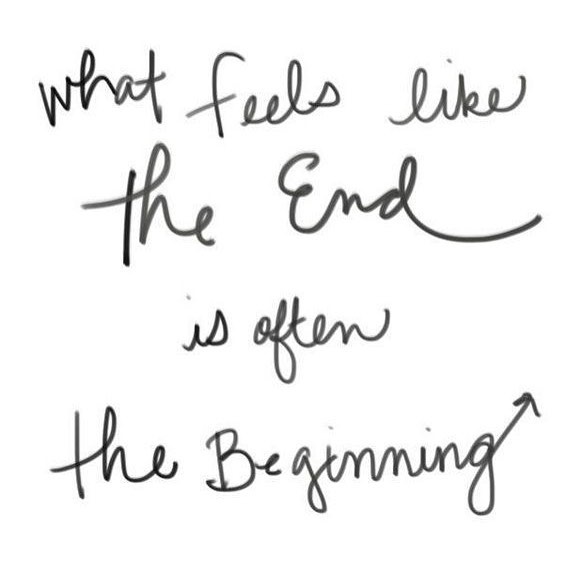 what feels like
the End
is often
the Beginning